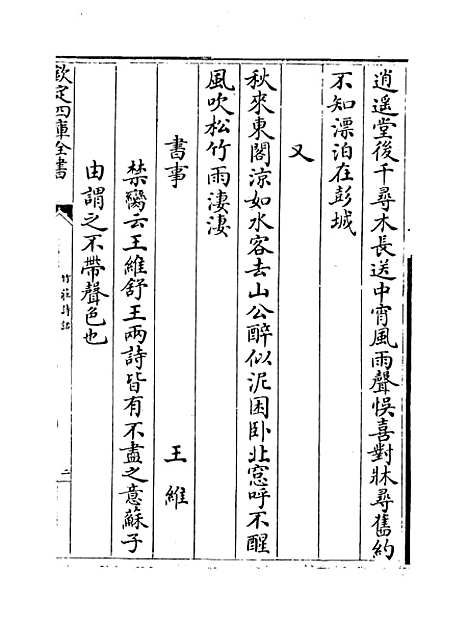 逍遥堂後千尋木長送中宵風雨聲悞喜對牀尋舊約
不知漂泊在彭城
又
秋來東閣涼如水客去山公醉似泥困卧北窓呼不醒
風吹松竹雨淒淒
書事 王維
禁臠云王維舒王兩詩皆有不盡之意蘇子
由謂之不帶聲色也
欽定四庫全書 竹莊詩話 二